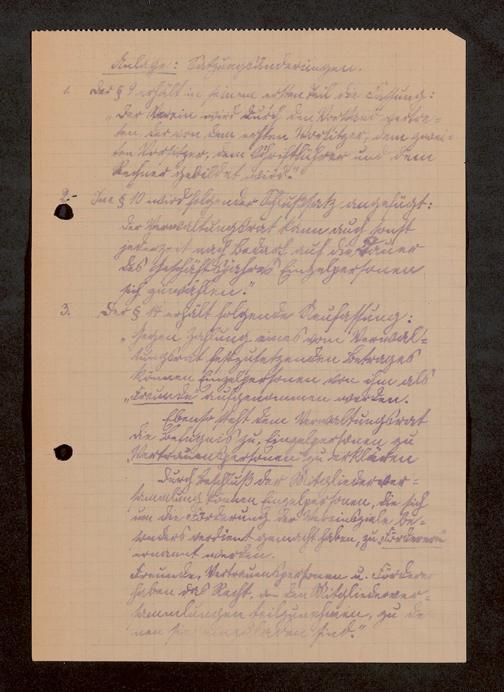 Anlage: Satzungsänderungen.
1. Der § 9 erhält in seinem ersten Teil die Fassung:
"Der Verein wird durch den Vorstand vertre-
ten, der von dem ersten Vorsitzer, dem zwei-
ten Vorsitzer, dem Schriftführer und dem
Rechner gebildet wird."
2. Im § 10 wird folgender Schlußsatz angefügt:
Der Verwaltungsrat kann auch sonst
jederzeit nach Bedarf auf die Dauer
des Geschäftsjahres Einzelpersonen
sich zuwählen."
3. Der § 4 erhält folgende Neufassung:
"Gegen Zahlung eines vom Verwal-
tungsrat festzusetzenden Betrages
können Einzelpersonen von ihm als
"Freunde" aufgenommen werden.
Ebenso steht dem Verwaltungsrat
die Befugnis zu, Einzelpersonen zu
Vertrauenspersonen zu erklären
Durch Beschluß der Mitgliederver-
sammlung können Einzelpersonen, die sich
um die Förderung der Vereinsziele be-
sonders verdient gemacht haben, zu Förderern
ernannt werden.
Freunde, Vertrauenspersonen u. Förderer
haben das Recht, an den Mitgliederver-
sammlungen teilzunehmen, zu de-
nen sie einzuladen sind."